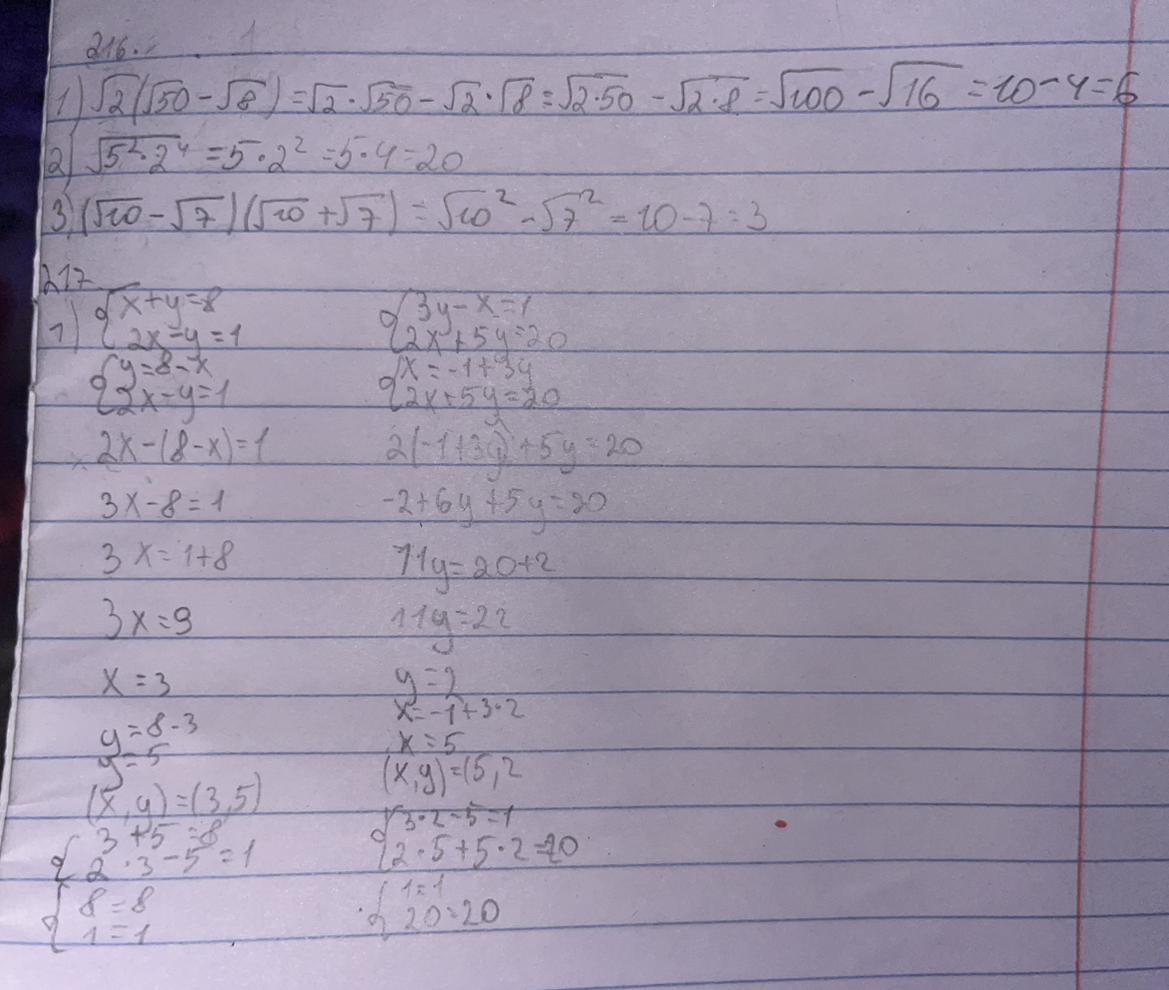 216.
1) √2(√50-√8)=√2·√50-√2·√8=√2·50-√2·8=√100-√16=10-4=6
2) √5²·2⁴=5·2²=5·4=20
3) (√10-√7)(√10+√7)=√10²-√7²=10-7=3
217
1) {x+y=8
2x-y=1
{y=8-x
2x-y=1
2x-(8-x)=1
3x-8=1
3x=1+8
3x=9
x=3
y=8-3
y=5
(x,y)=(3,5)
{3+5=8
2·3-5=1
{8=8
1=1
{3y-x=1
2x+5y=20
{x=-1+3y
2x+5y=20
2(-1+3y)+5y=20
-2+6y+5y=20
11y=20+2
11y=22
y=2
x=-1+3·2
x=5
(x,y)=(5,2
{3·2-5=1
2·5+5·2=20
{1=1
20=20